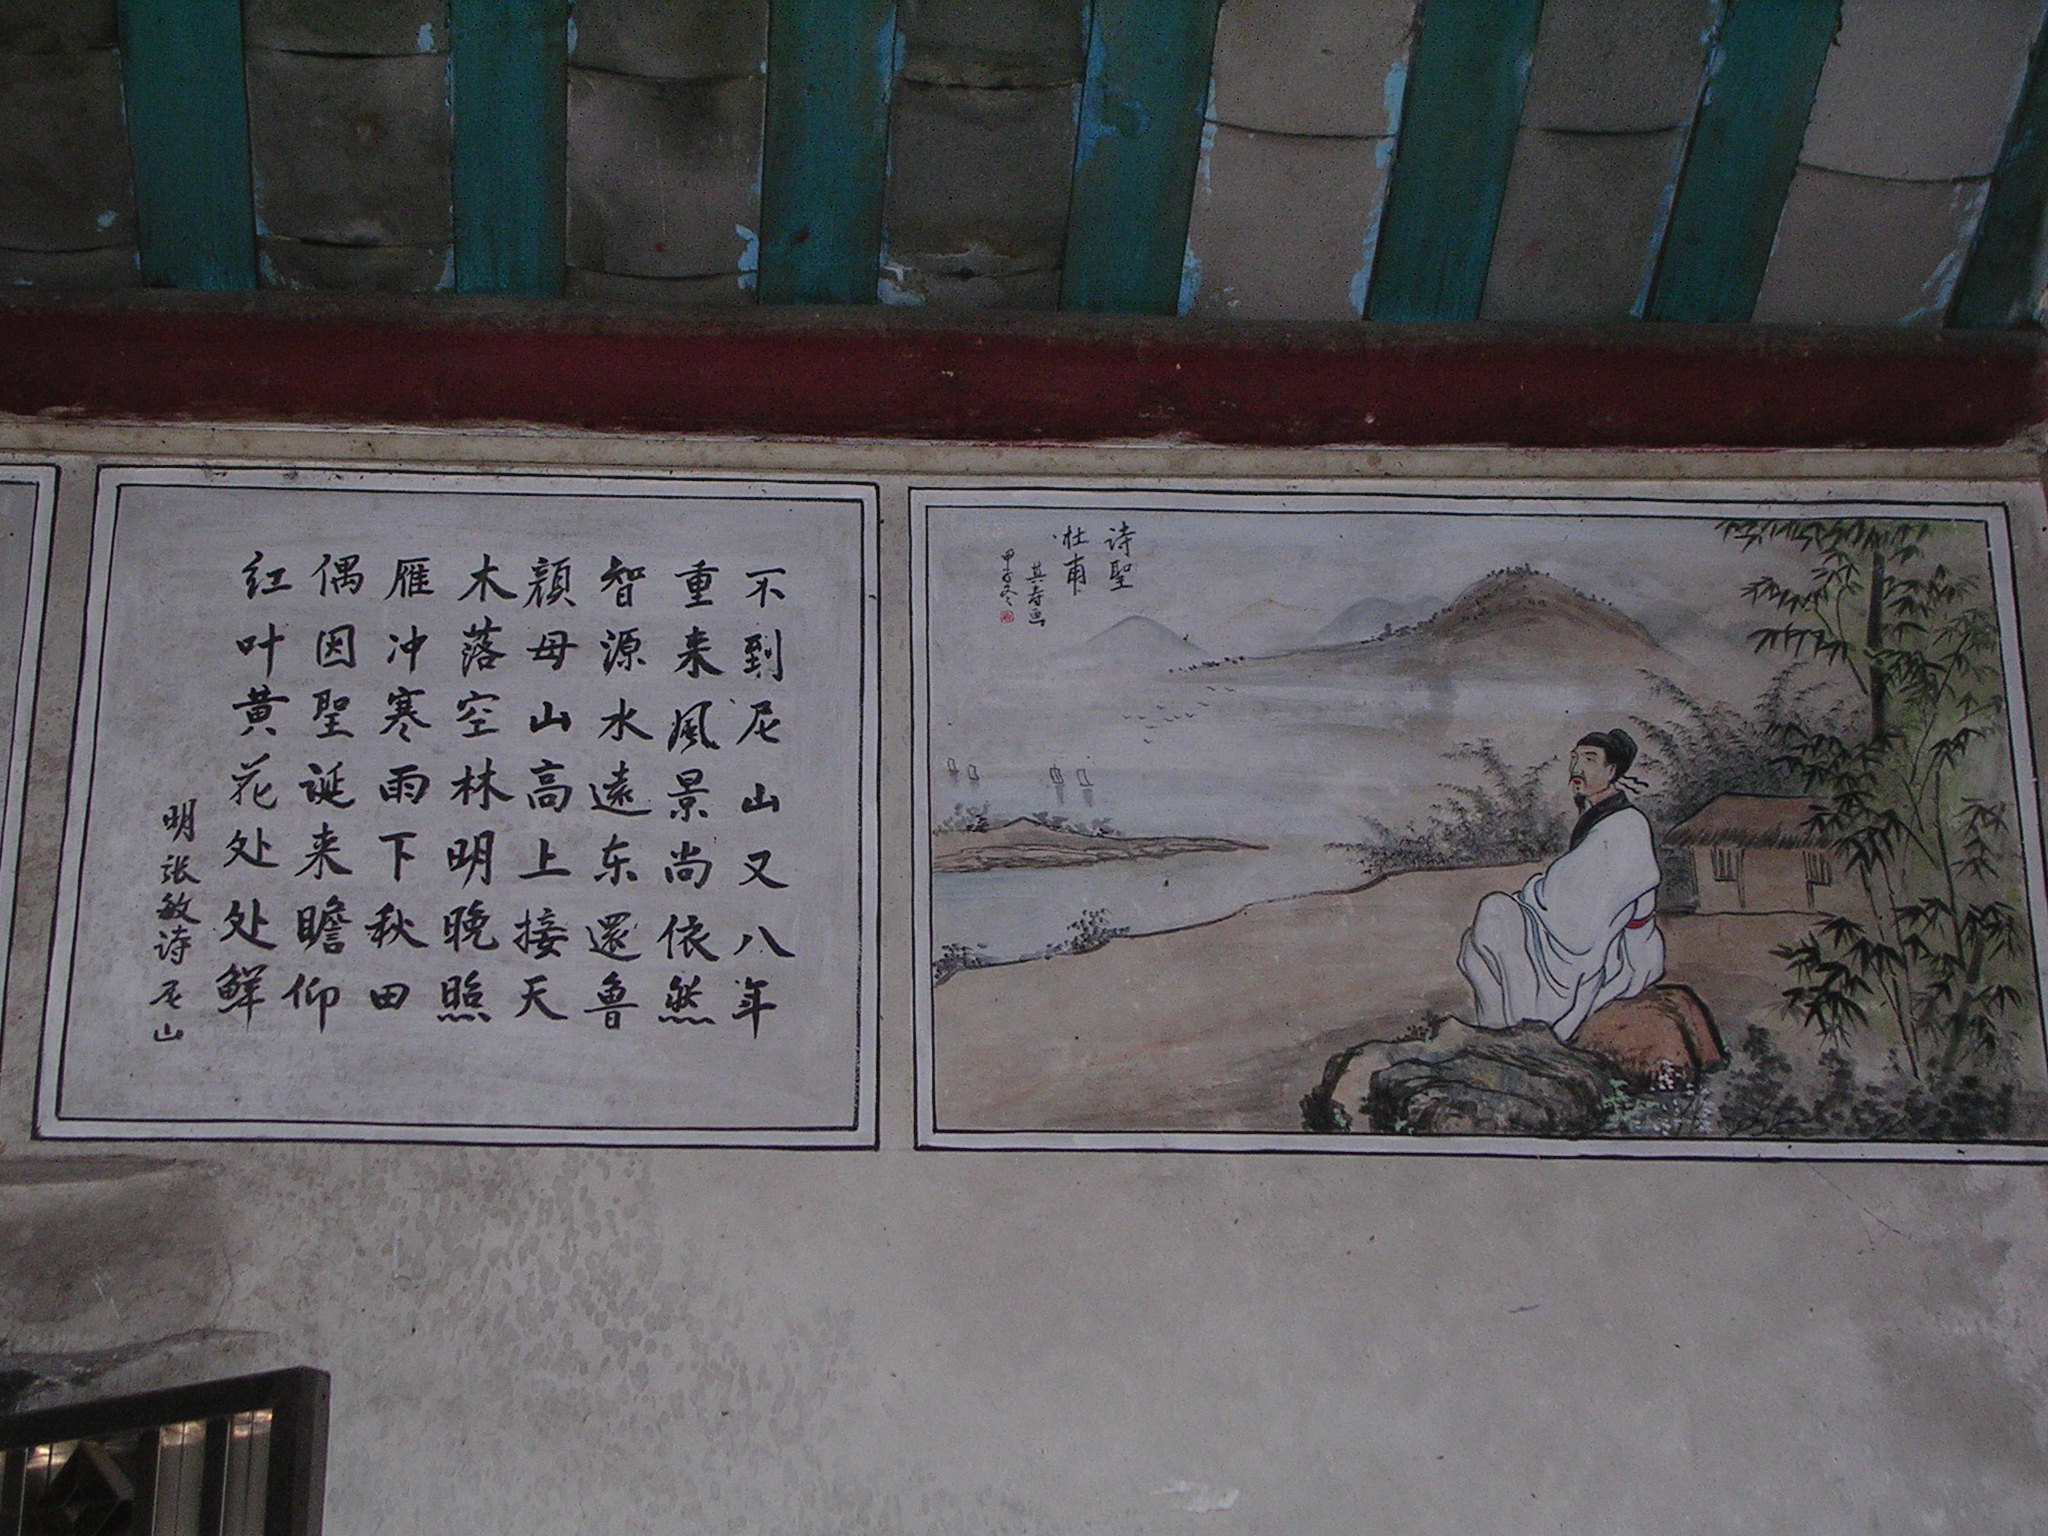 不到尼山又八年
重来風景尚依然
智源水遠东還魯
顔母山高上接天
木落空林明晚照
雁冲寒雨下秋田
偶因聖诞来瞻仰
红叶黄花处处鲜
明张敏诗尼山
诗聖
杜甫
其寿画
甲子冬